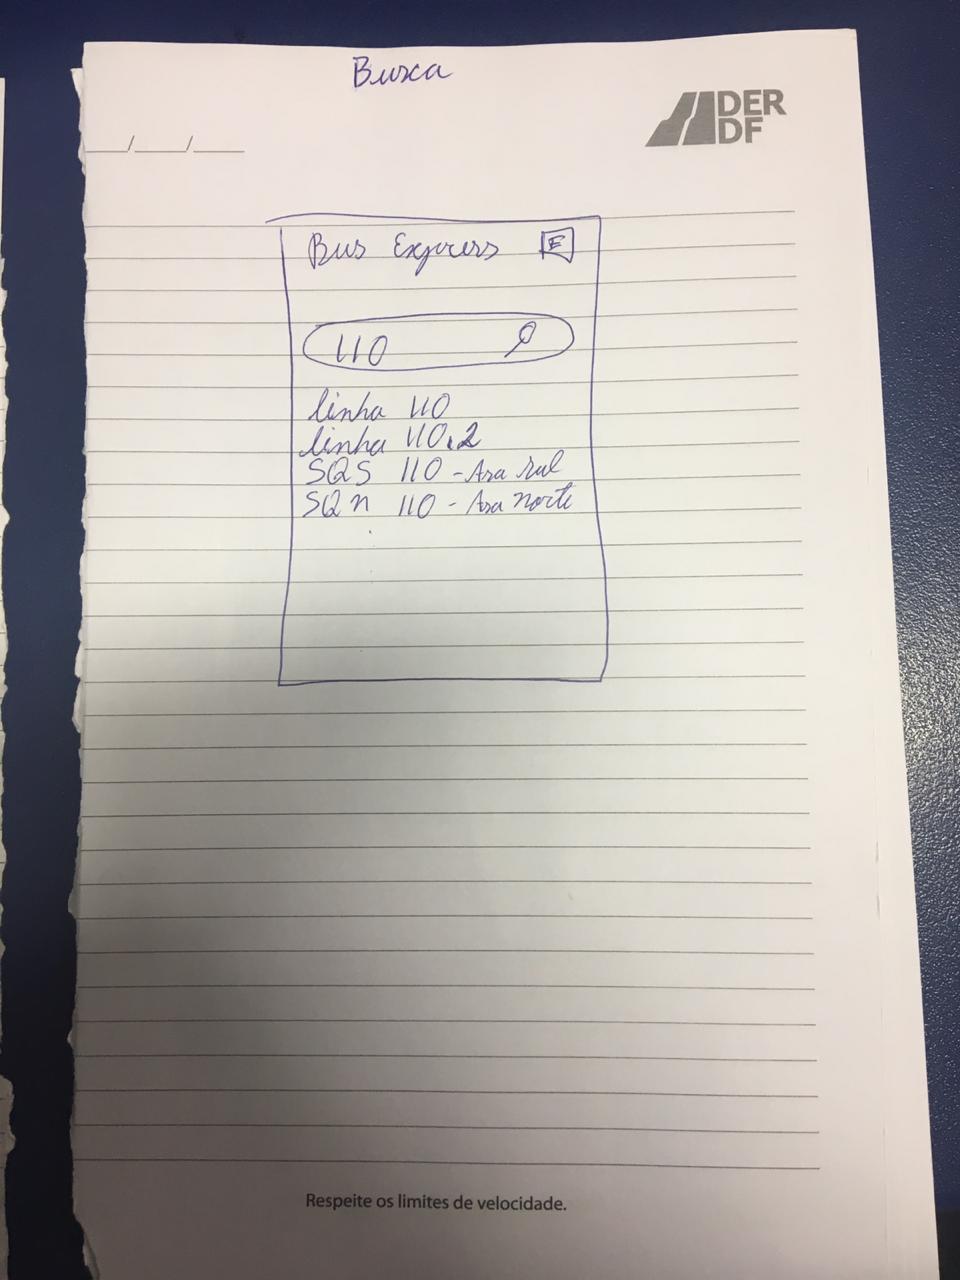 Busca
DER
DF
__/__/__
Bus Express E
110
linha 110
linha 110.2
SQS 110 - Asa sul
SQN 110 - Asa norte
Respeite os limites de velocidade.